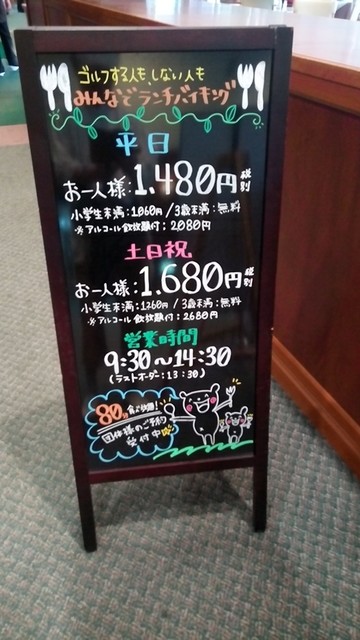 ゴルフする人も、しない人も
みんなでランチバイキング
平日
お一人様:1.480円税別
小学生未満:1060円/3歳未満:無料
※アルコール飲放題付:2080円
土日祝
お一人様:1.680円税別
小学生未満:1260円/3歳未満:無料
※アルコール飲放題付:2680円
営業時間
9:30〜14:30
(ラストオーダー:13:30)
80分食べ放題!
団体様のご予約
受付中